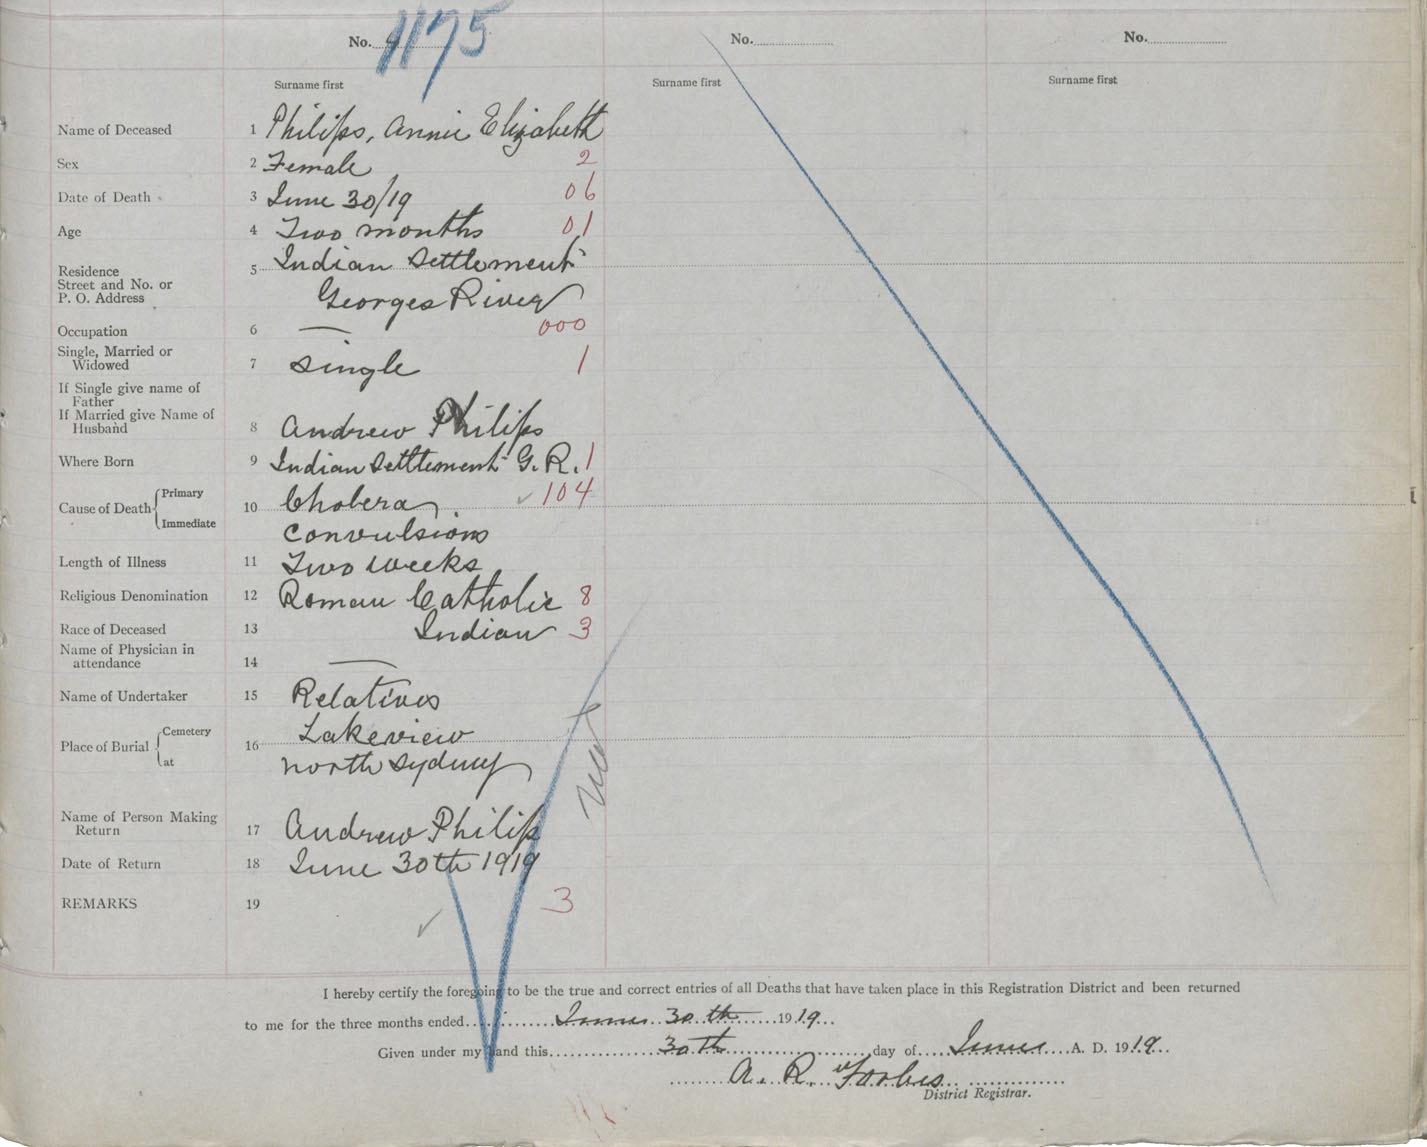 No. 4 1175
No.
No.
Surname first
Surname first
Surname first
Name of Deceased 1 Philips, Annie Elizabeth
Sex 2 Female 2
Date of Death 3 June 30/19 06
Age 4 Two months 01
Residence
Street and No. or
P. O. Address
5 Indian Settlement
Georges River
Occupation 6 — 000
Single, Married or
Widowed
7 Single 1
If Single give name of
Father
If Married give Name of
Husband
8 Andrew Philips
Where Born 9 Indian Settlement G. R. 1
Cause of Death { Primary
Immediate
10 Cholera ✓ 104
Convulsions
Length of Illness 11 Two weeks
Religious Denomination 12 Roman Catholic 8
Race of Deceased 13 Indian 3
Name of Physician in
attendance
14 —
Name of Undertaker 15 Relatives
Place of Burial { Cemetery
at
16 Lakeview
North Sydney
Name of Person Making
Return
17 Andrew Philip
Date of Return 18 June 30th 1919
REMARKS 19 3
I hereby certify the foregoing to be the true and correct entries of all Deaths that have taken place in this Registration District and been returned
to me for the three months ended June 30th 1919
Given under my hand this 30th day of June A. D. 1919
A. R. Forbes
District Registrar.